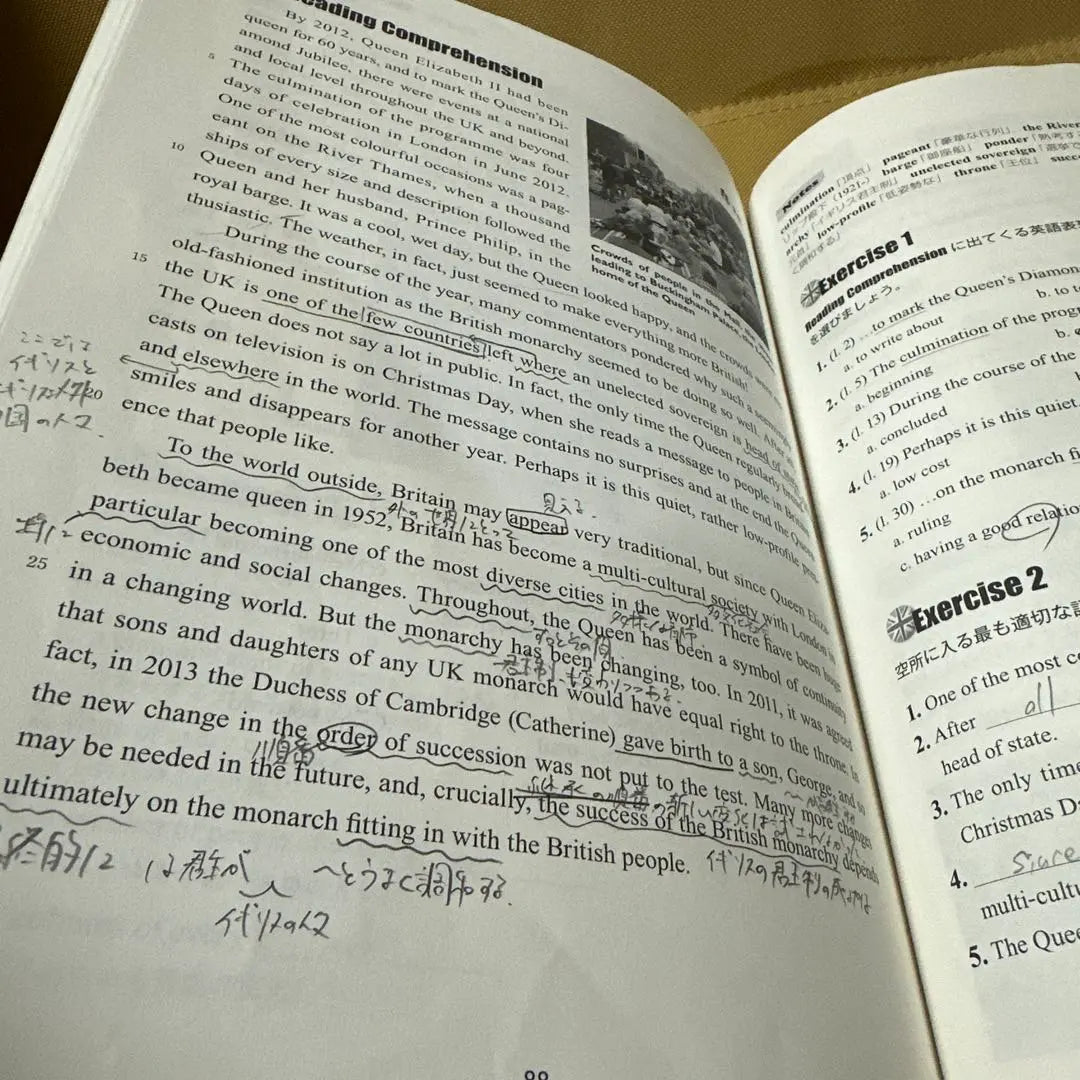 Reading Comprehension
By 2012, Queen Elizabeth II had been
queen for 60 years, and to mark the Queen's Di-
amond Jubilee, there were events at a national
5 and local level throughout the UK and beyond.
The culmination of the programme was four
days of celebration in London in June 2012.
One of the most colourful occasions was a pag-
eant on the River Thames, when a thousand
10 ships of every size and description followed the
Queen and her husband, Prince Philip, in the
royal barge. It was a cool, wet day, but the Queen looked happy, and the crowds
thusiastic. The weather, in fact, just seemed to make everything more British!
During the course of the year, many commentators pondered why such a seemingly
15 old-fashioned institution as the British monarchy seemed to be doing so well. After
the UK is one of the few countries left where an unelected sovereign is head of
The Queen does not say a lot in public. In fact, the only time the Queen regularly
casts on television is on Christmas Day, when she reads a message to people in Britain
and elsewhere in the world. The message contains no surprises and at the end the Queen
smiles and disappears for another year. Perhaps it is this quiet, rather low-profile
ence that people like.
To the world outside, Britain may appear very traditional, but since Queen Eliza-
beth became queen in 1952, Britain has become a multi-cultural society with London in
particular becoming one of the most diverse cities in the world. There have been huge
25 economic and social changes. Throughout, the Queen has been a symbol of continuity
in a changing world. But the monarchy has been changing, too. In 2011, it was agreed
that sons and daughters of any UK monarch would have equal right to the throne. In
fact, in 2013 the Duchess of Cambridge (Catherine) gave birth to a son, George, and so
the new change in the order of succession was not put to the test. Many more changes
may be needed in the future, and, crucially, the success of the British monarchy depends
ultimately on the monarch fitting in with the British people.
Crowds of people in the Mall
leading to Buckingham Palace, the
home of the Queen
見える.
外の世界にとって
特に
君主制も変わりつつある
順番
は君主が
〜とうまく調和する.
イギリスの人々
イギリスの君主制の
Notes
culmination「頂点」 pageant「豪華な行列」 the River
barge「御座船」 ponder「熟考する
(1921-) unelected sovereign「選挙で
「イギリス君主制」 throne「王位」
low-profile「低姿勢な」
Exercise 1
Reading Comprehension に出てくる英語表
を選びましょう。
1. (l. 2) …to mark the Queen's Diamon
a. to write about b. to
2. (l. 5) The culmination of the prog
a. beginning
3. (l. 13) During the course of the
a. concluded
4. (l. 19) Perhaps it is this quiet
a. low cost
5. (l. 30) …on the monarch fi
a. ruling
c. having a good relatio
Exercise 2
空所に入る最も適切な
1. One of the most co
2. After all
head of state.
3. The only time
Christmas D
4.
multi-cultu
5. The Quee